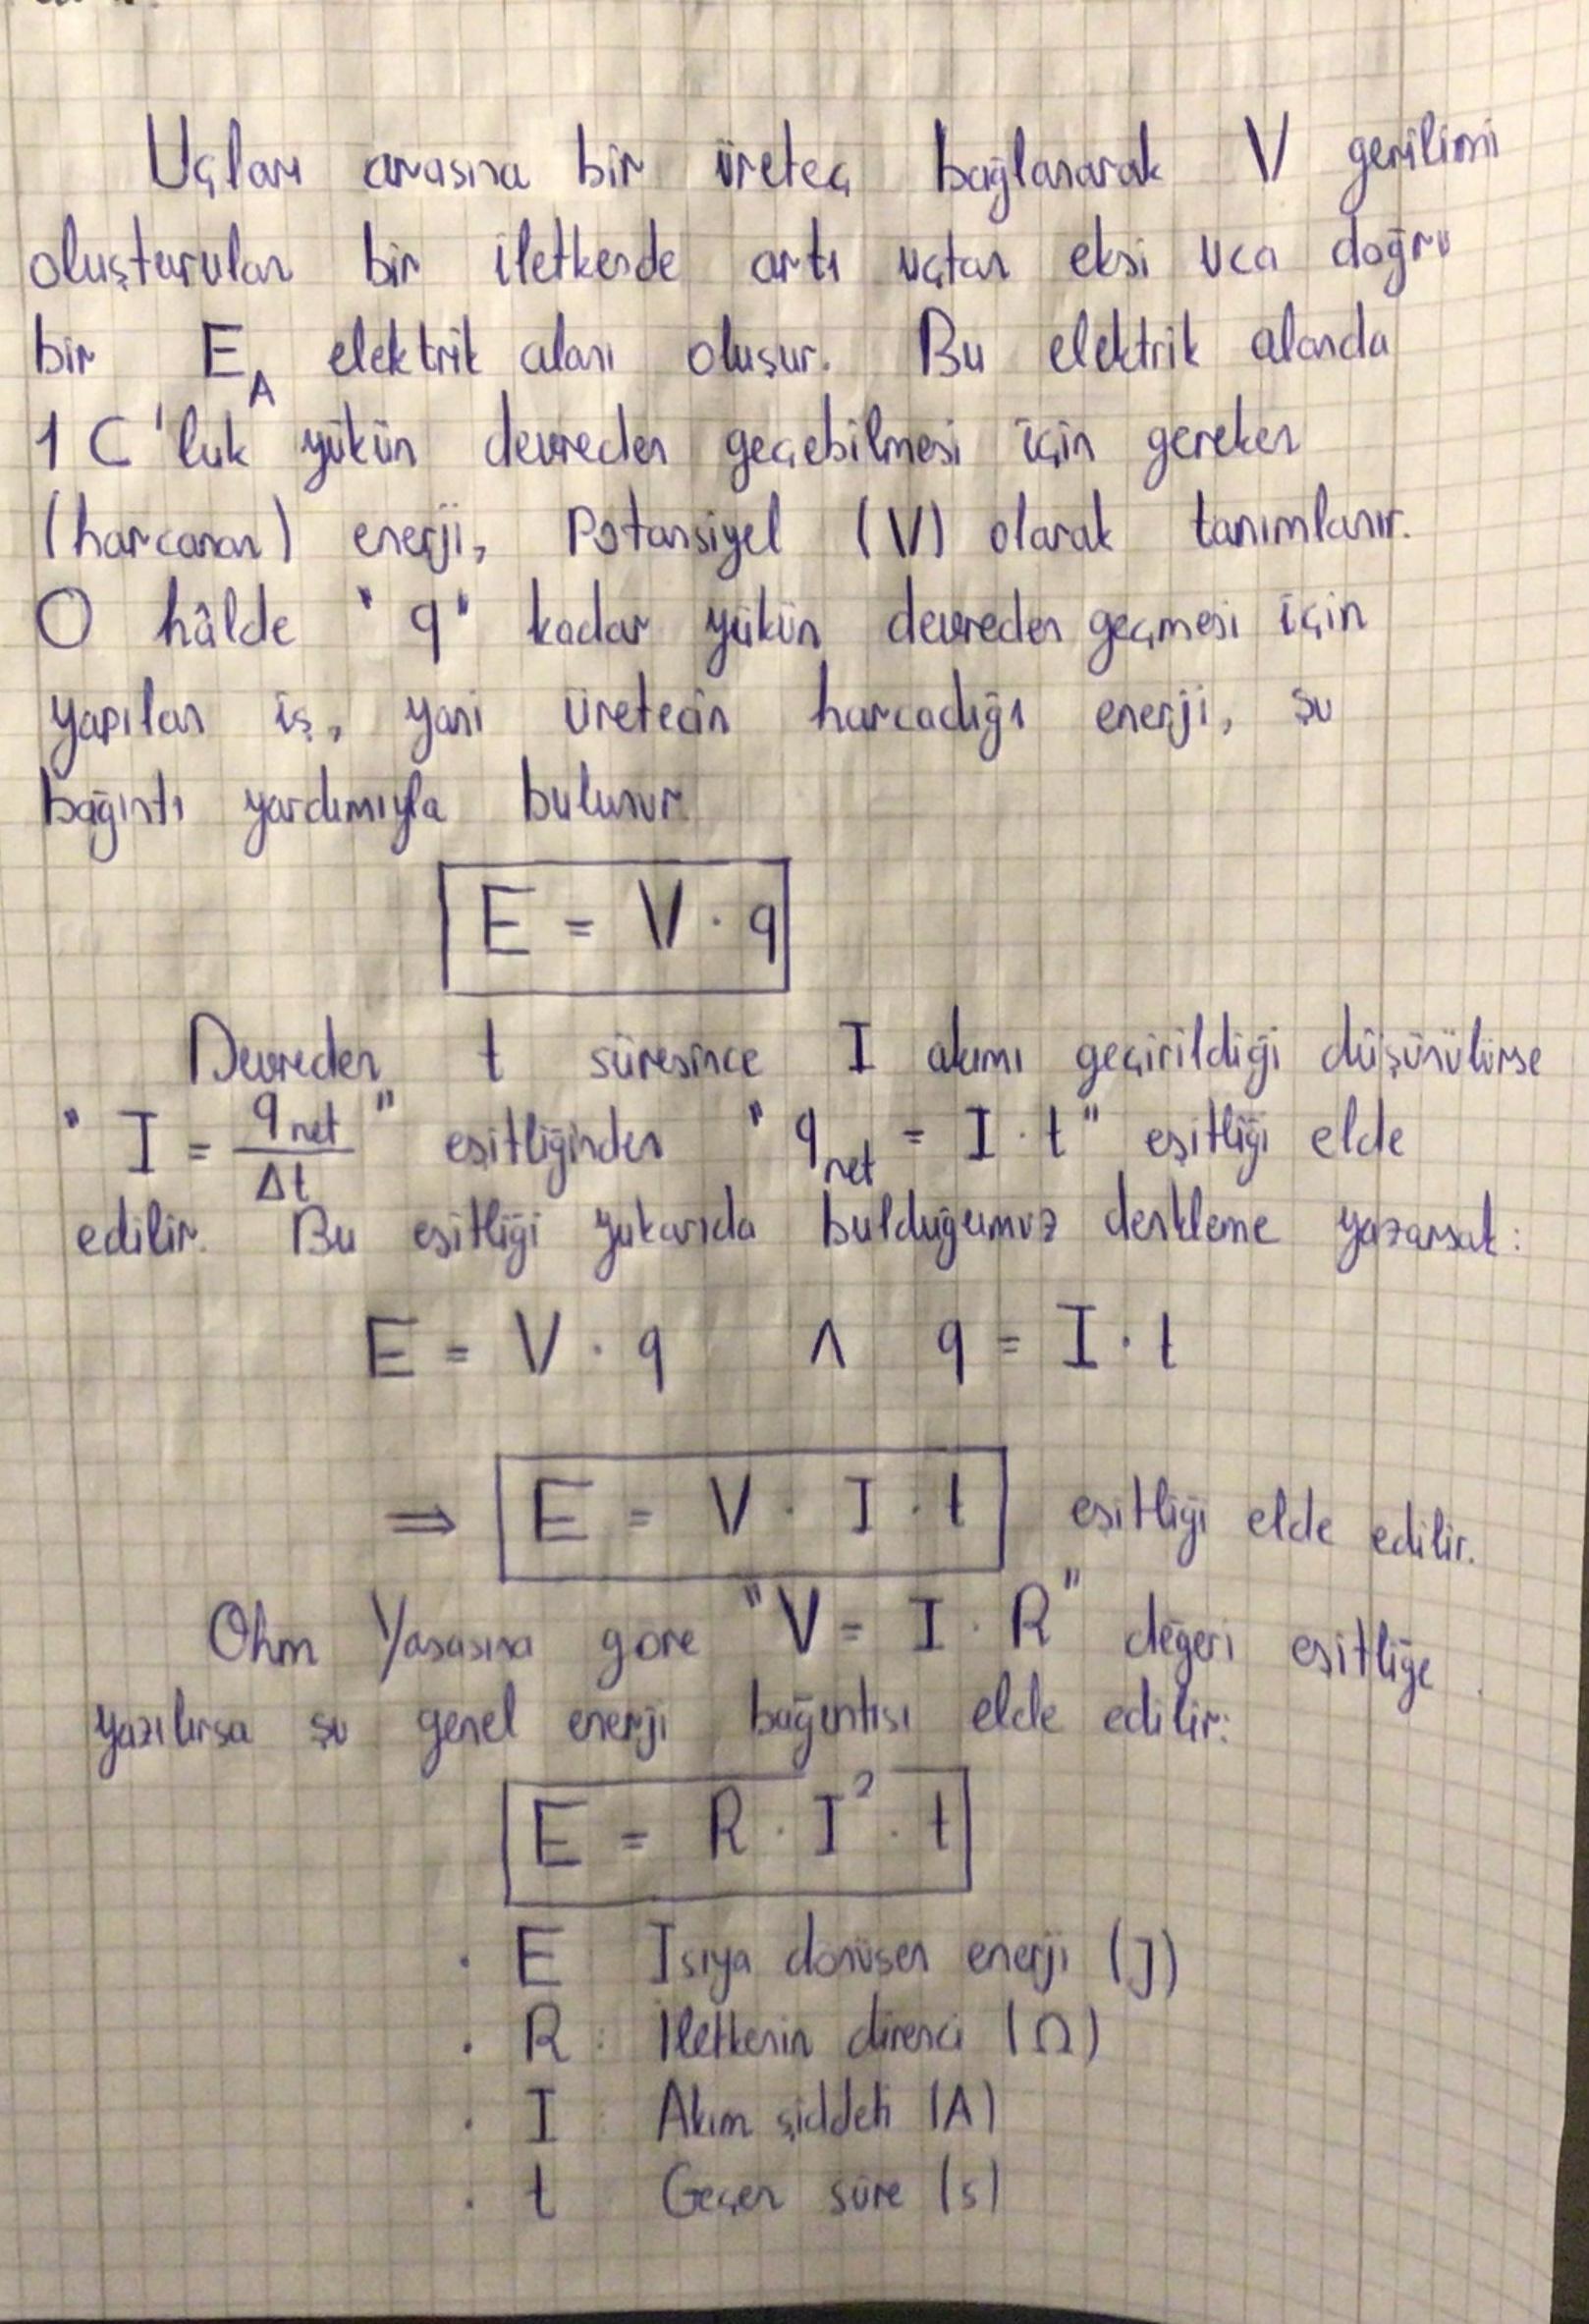 Uçları arasına bir üreteç bağlanarak V gerilimi
oluşturulan bir iletkende artı uçtan eksi uca doğru
bir E_A elektrik alanı oluşur. Bu elektrik alanda
1 C'luk yükün devreden geçebilmesi için gereken
(harcanan) enerji, Potansiyel (V) olarak tanımlanır.
O hâlde "q" kadar yükün devreden geçmesi için
yapılan iş, yani üretecin harcadığı enerji, şu
bağıntı yardımıyla bulunur.
E = V · q
Devreden t süresince I akımı geçirildiği düşünülürse
"I = q_net / Δt" eşitliğinden "q_net = I · t" eşitliği elde
edilir. Bu eşitliği yukarıda bulduğumuz denkleme yazarsak:
E = V · q ∧ q = I · t
⇒ E = V · I · t eşitliği elde edilir.
Ohm Yasasına göre "V = I · R" değeri eşitliğe
yazılırsa şu genel enerji bağıntısı elde edilir:
E = R · I² · t
· E : Isıya dönüşen enerji (J)
· R : İletkenin direnci (Ω)
· I : Akım şiddeti (A)
· t : Geçen süre (s)